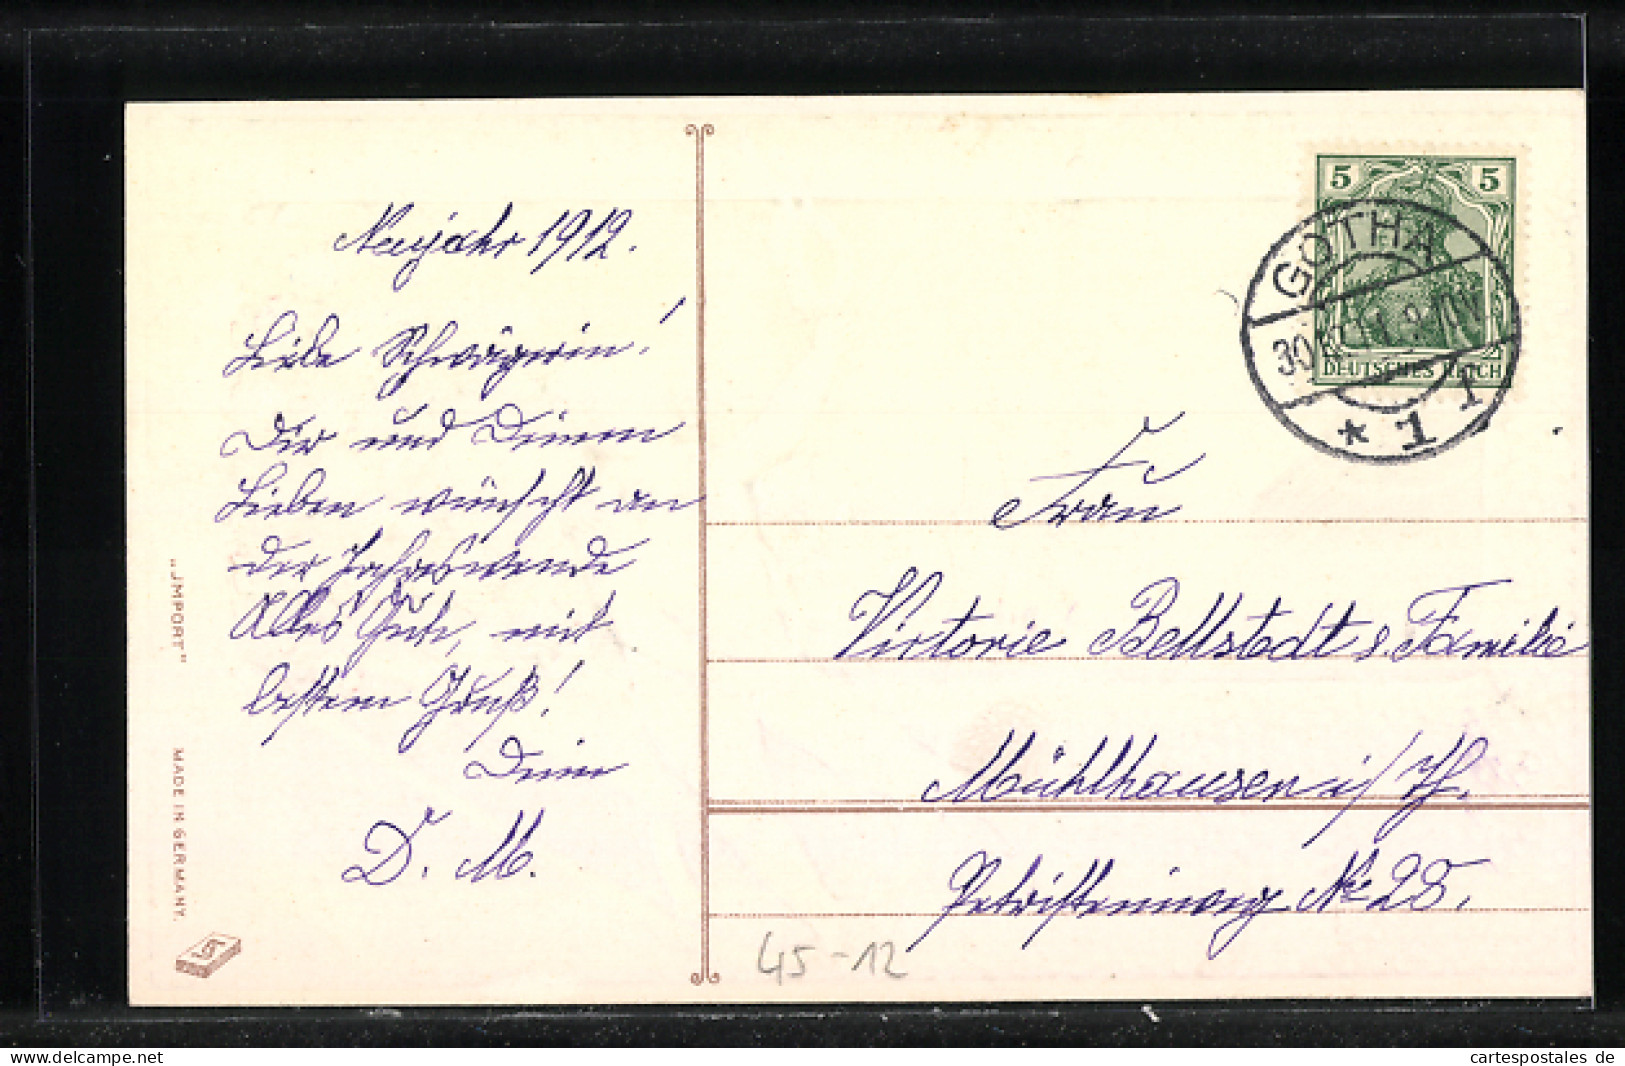 Neujahr 1912.
Liebe Schwägerin!
Dir und Deinen
Lieben wünscht an
der Jahreswende
Alles Gute, mit
bestem Gruß!
Dein
D. M.
"IMPORT"
MADE IN GERMANY.
5 5
DEUTSCHES REICH
GOTHA
30. 11. 9-10V.
* 1 f
Frau
Victorie Bellstedt u. Familie
Mühlhausen i/Th.
No 28.
45-12
cartespostales.de
cartespostales de